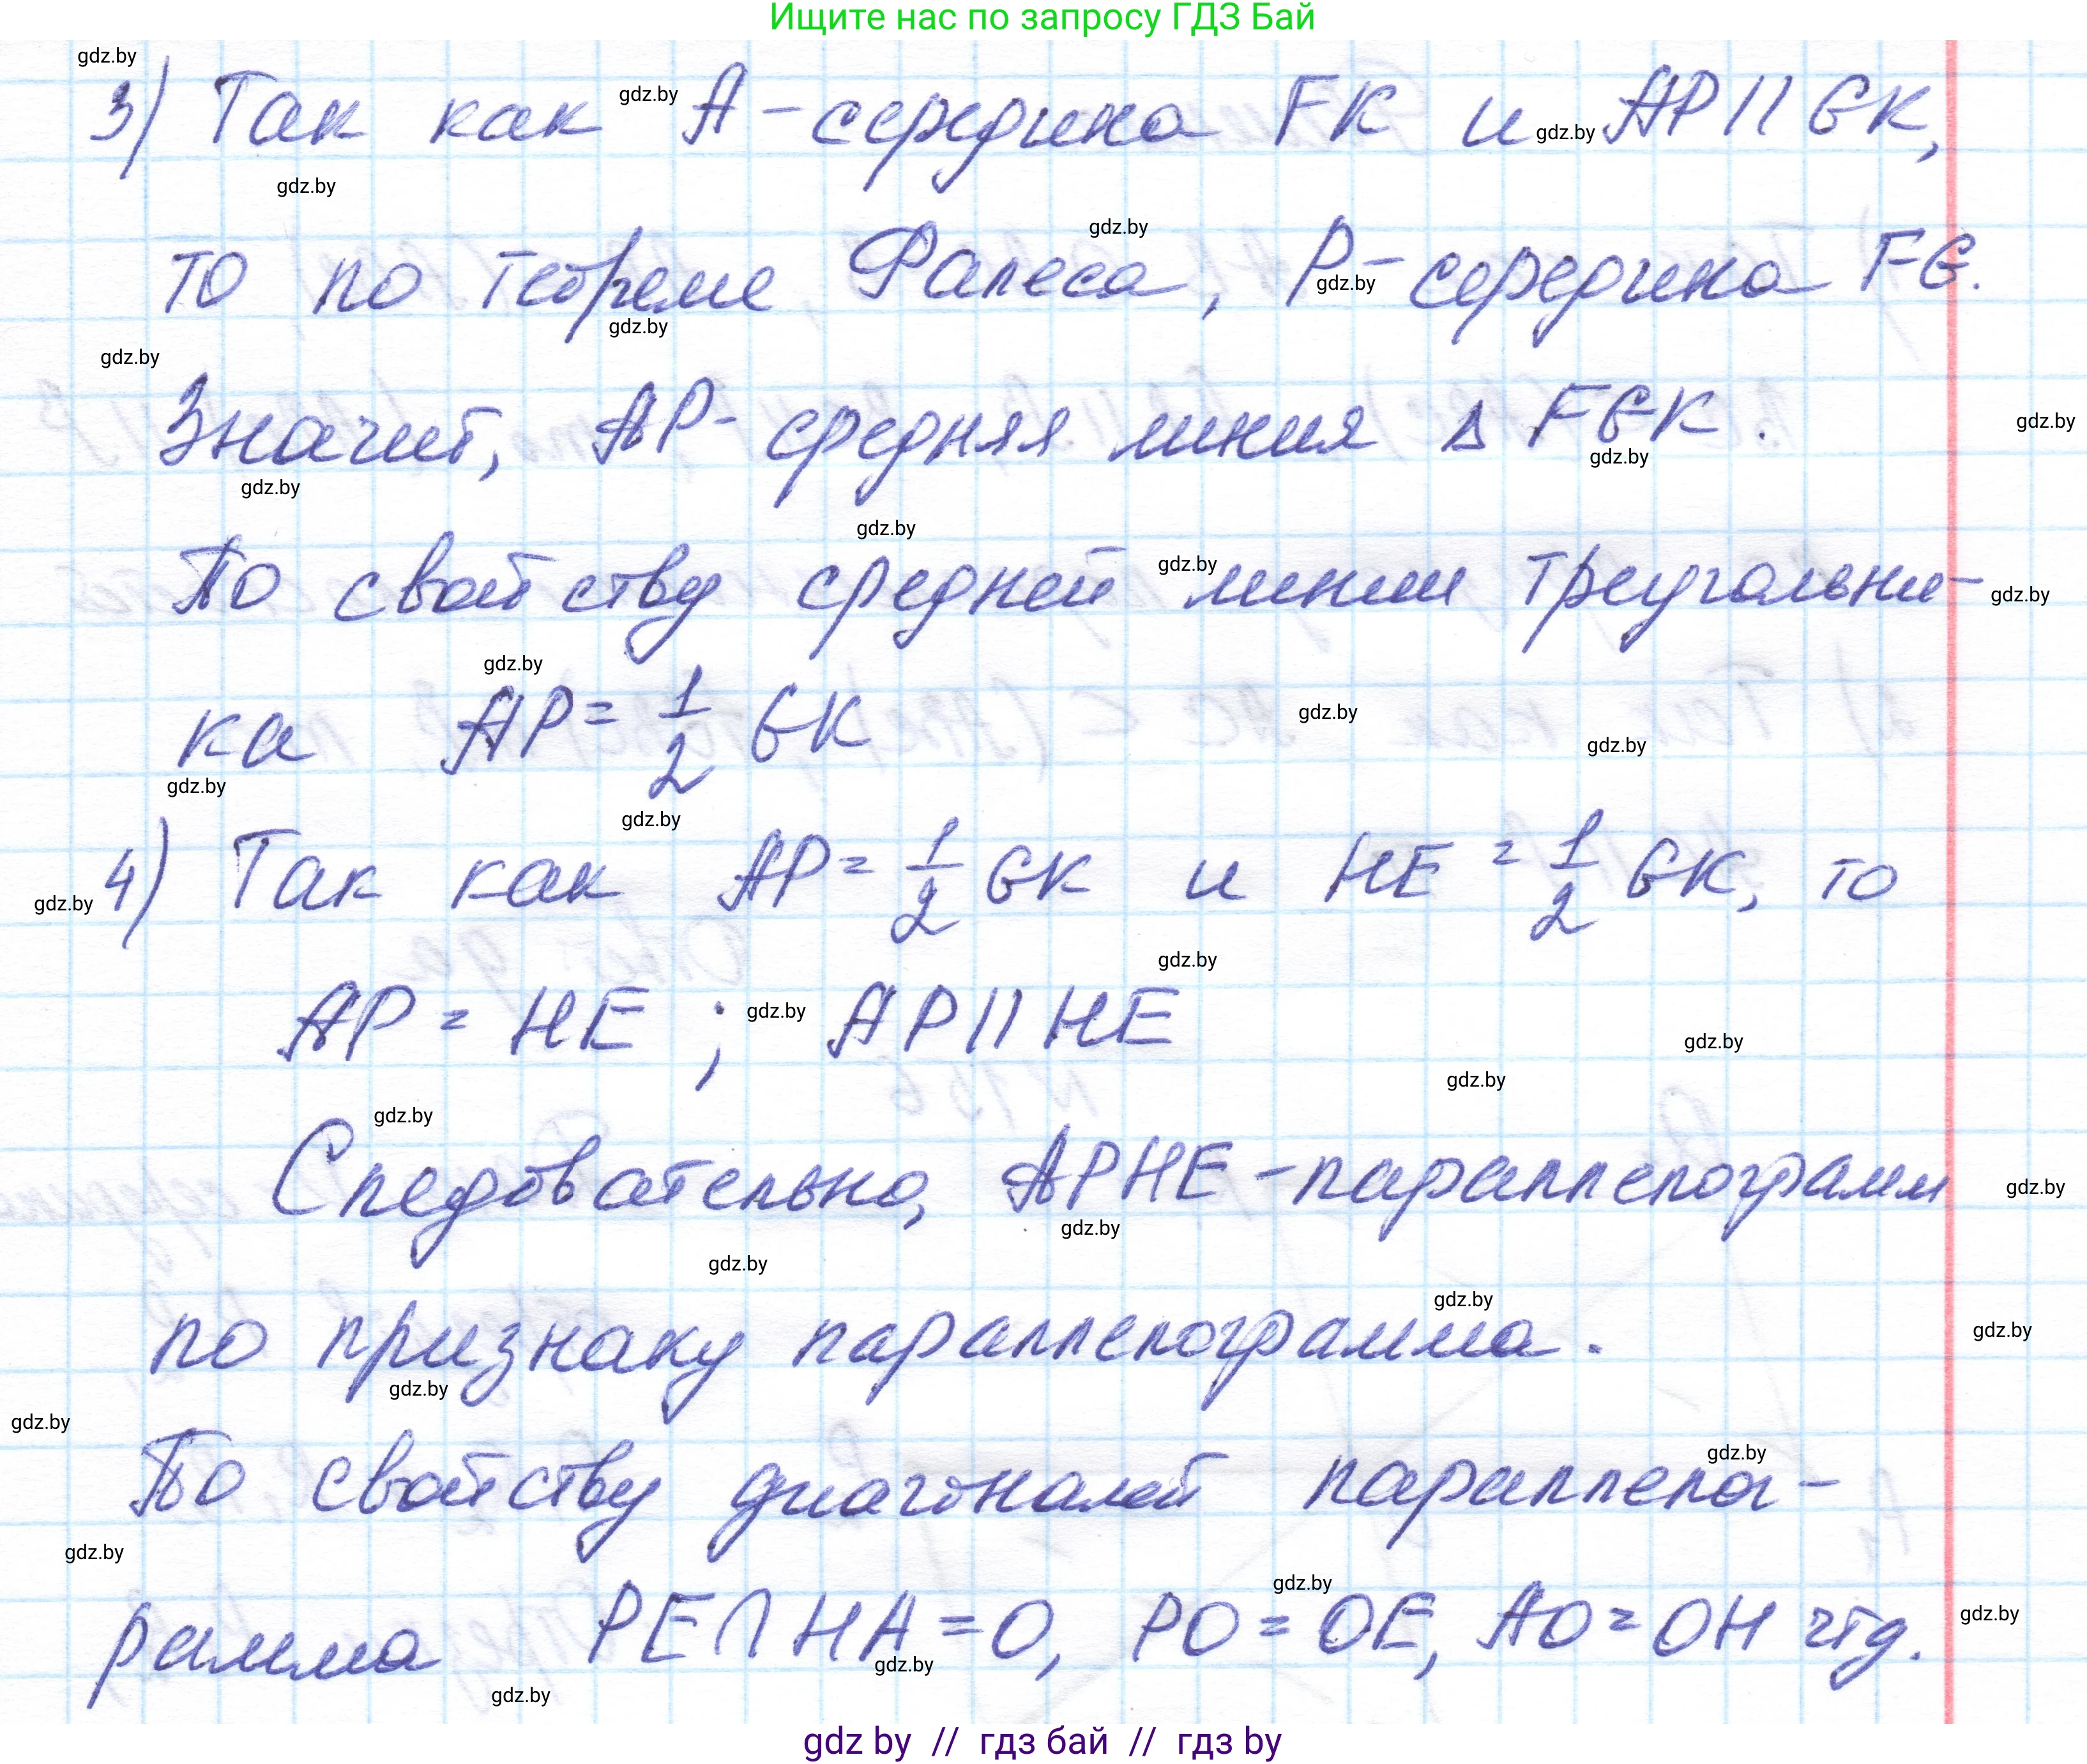 Ищите нас по запросу ГДЗ Бай
gdz.by
3) Так как А - середина FK и AP || GK,
gdz.by
gdz.by
gdz.by
gdz.by
то по теореме Фалеса, P - середина FG.
gdz.by
gdz.by
gdz.by
Значит, AP - средняя линия Δ FGK.
gdz.by
gdz.by
gdz.by
gdz.by
По свойству средней линии треугольни-
gdz.by
gdz.by
gdz.by
ка AP = 1/2 GK
gdz.by
gdz.by
gdz.by
gdz.by
4) Так как AP = 1/2 GK и HE = 1/2 GK, то
gdz.by
gdz.by
AP = HE ; AP || HE
gdz.by
gdz.by
gdz.by
gdz.by
Следовательно, APHE - параллелограмм
gdz.by
gdz.by
gdz.by
gdz.by
по признаку параллелограмма.
gdz.by
gdz.by
gdz.by
gdz.by
По свойству диагоналей параллелог-
gdz.by
gdz.by
рамма PE ∩ HA = O, PO = OE, AO = OH чтд.
gdz.by
gdz.by
gdz.by
gdz.by
gdz by // гдз бай // гдз by